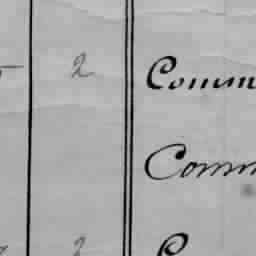 2 Comm
Comm
2 C